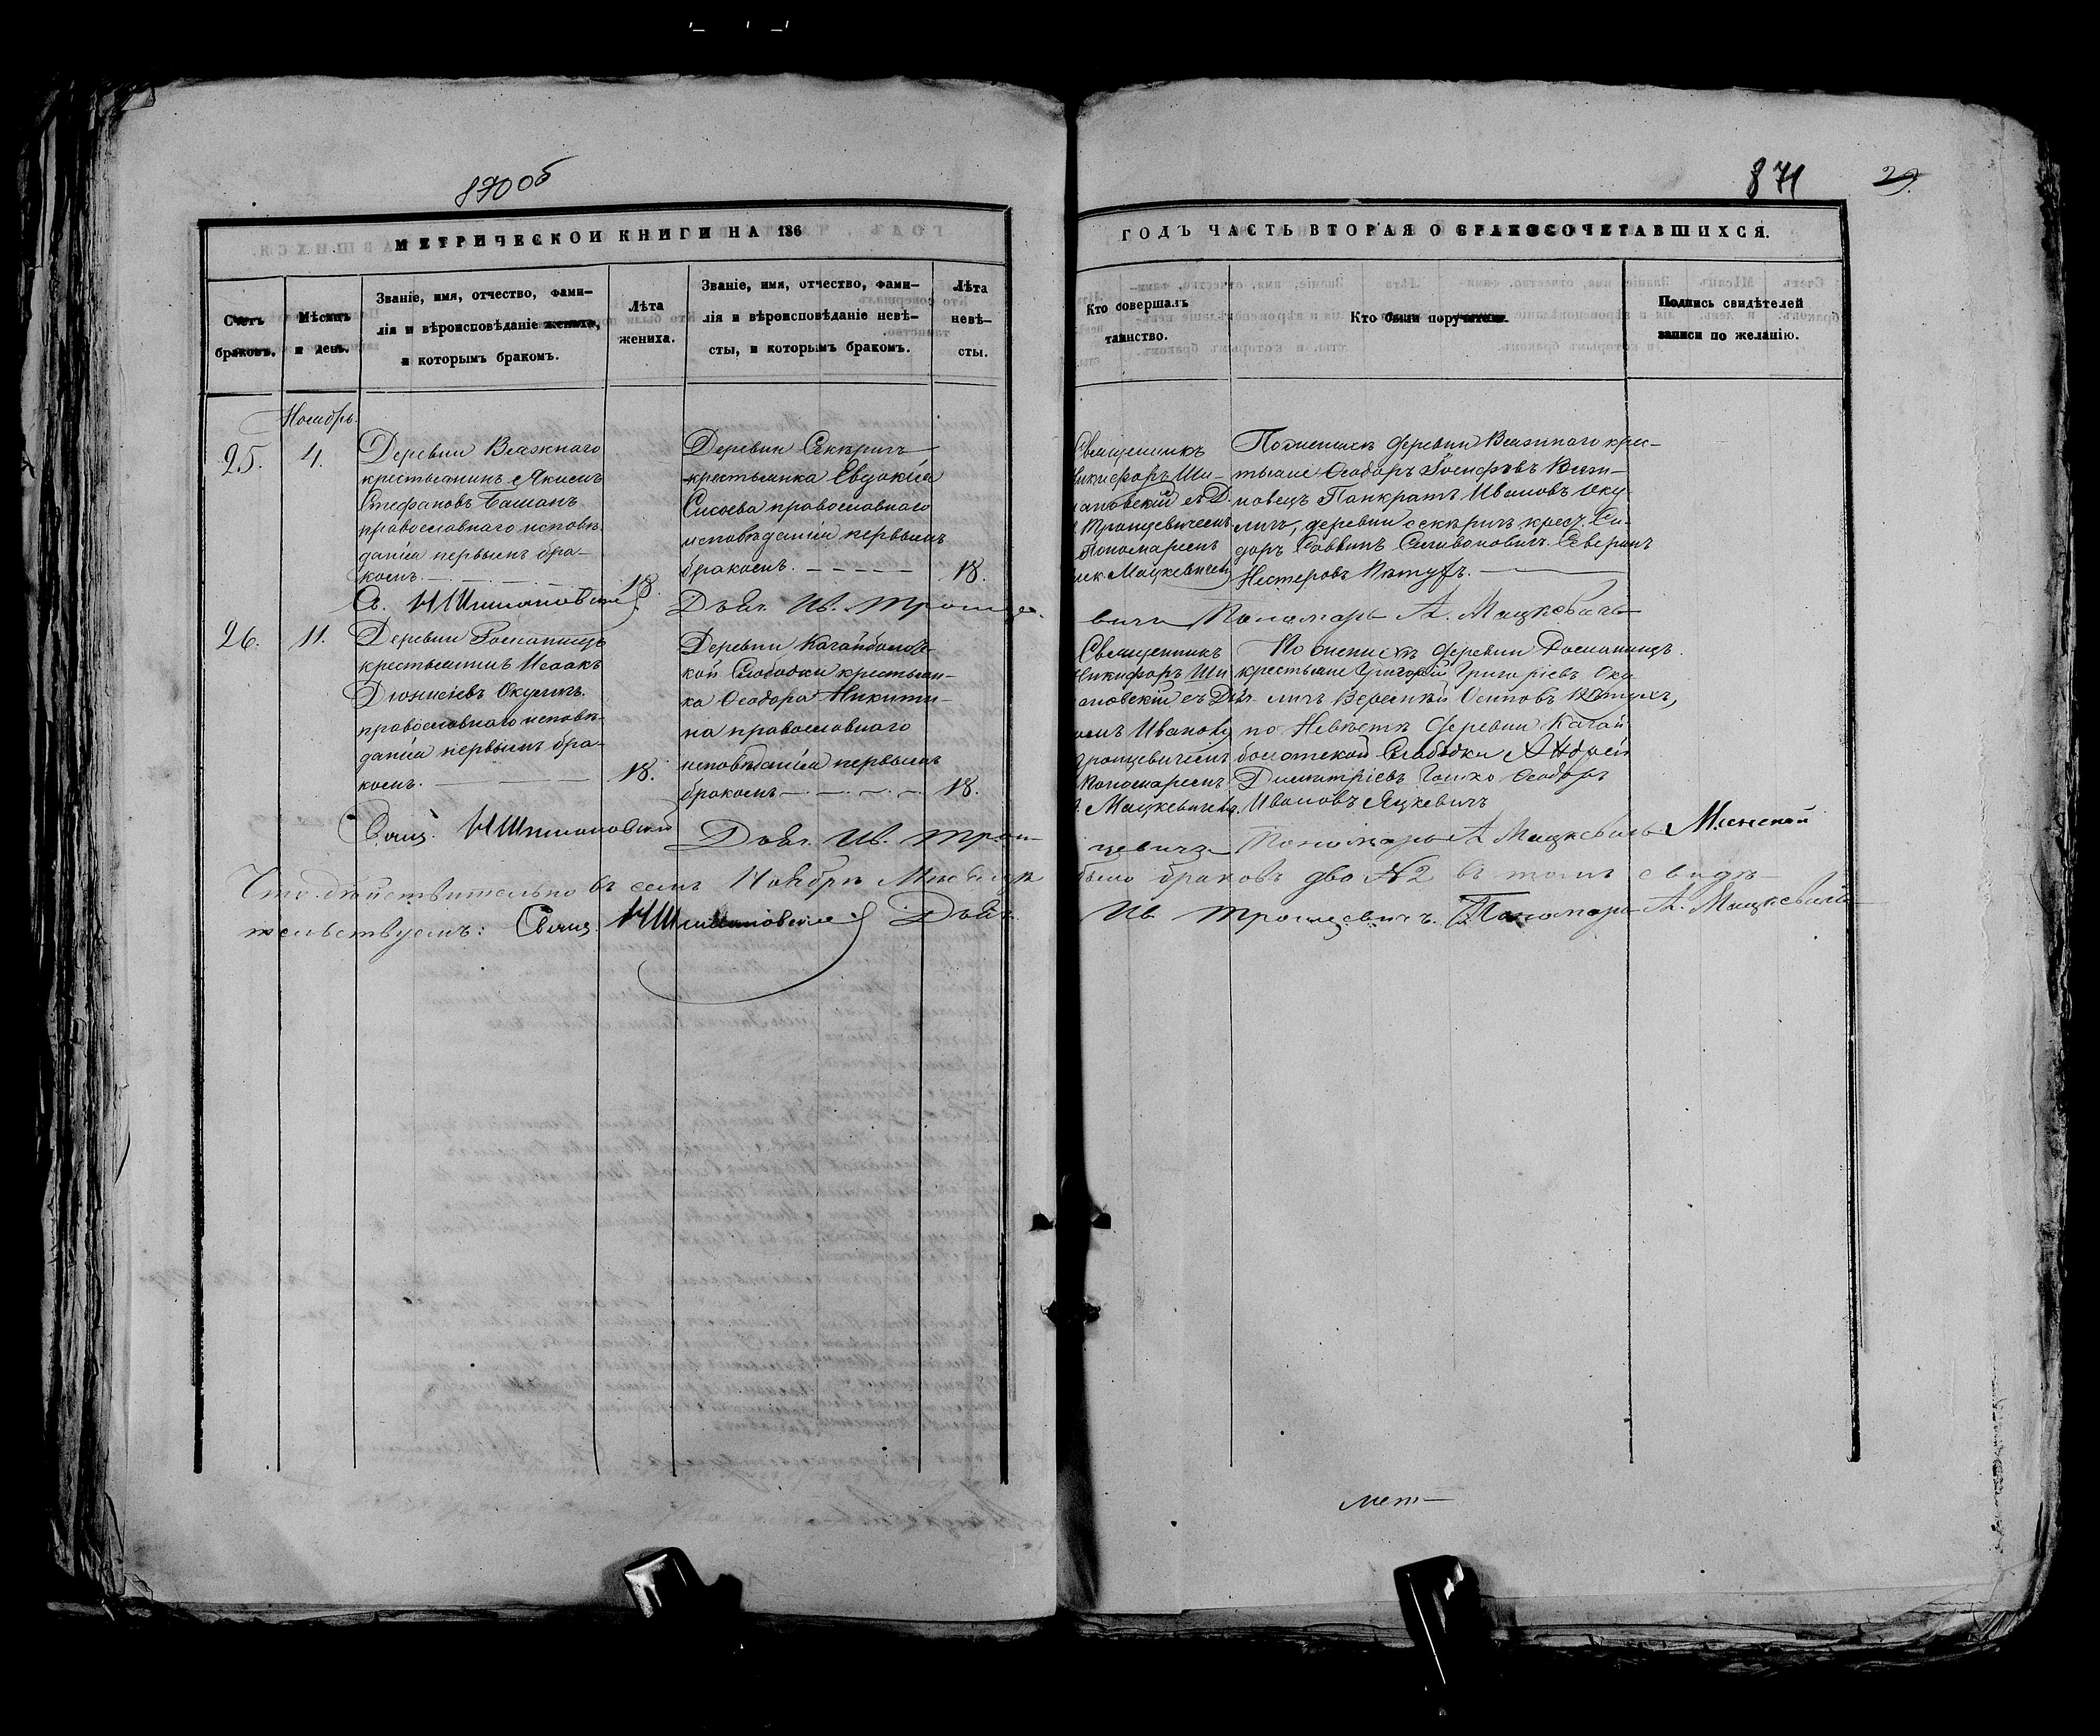 870 об
871
29.
МЕТРИЧЕСКОИ КНИГИ НА 186
ГОДЪ ЧАСТЬ ВТОРАЯ О БРАКОСОЧЕТАВШИХСЯ.
Счетъ браковъ.
Мѣсяцъ и день.
Званіе, имя, отчество, фами-
лія и вѣроисповѣданіе жениха,
и которымъ бракомъ.
Лѣта
жениха.
Званіе, имя, отчество, фами-
лія и вѣроисповѣданіе невѣ-
сты, и которымъ бракомъ.
Лѣта
невѣ-
сты.
Кто совершалъ
таинство.
Кто были поручители.
Подпись свидѣтелей
записи по желанію.
Ноябрь.
25.
4.
Деревни
крестьянинъ Якимъ
Стефановъ Башанъ
православнаго исповѣ-
данія первымъ бра-
комъ.
18.
Деревни Секѣричъ
крестьянка Евдокія
Сисоева православнаго
исповѣданія первымъ
бракомъ.
18.
Священникъ
Никифоръ Ши-
мановскій съ Д.
Тронцевичемъ
Пономаремъ
Мацкевичемъ
По женихѣ деревни крес-
тьяне Ѳеодоръ Іосифовъ
Панкратъ Ивановъ Аку-
личъ, деревни секѣричъ крест. Си-
доръ Саввинъ
Нестеровъ
Св. Н Шимановскій
Дьяч. Ив. Тронце-
вичъ Пономарь А. Мацкевичъ
26.
11.
Деревни
крестьянинъ Исаакъ
Діонисіевъ Окуличъ
православнаго исповѣ-
данія первымъ бра-
комъ.
18.
Деревни Качайболот-
кой Слободки крестьян-
ка Ѳеодора Никити-
на православнаго
исповѣданія первымъ
бракомъ
18.
Священникъ
Никифоръ Ши
мановскій съ Дьяч.
Иваномъ
Тронцевичемъ
Пономаремъ
Мацкевичемъ.
По женихѣ деревни
крестьяне Григорій Григоріевъ Оку-
личъ Осиповъ
по Невѣстѣ деревни Качай
болотской Слободки Андрей
Димитріевъ Гошко Ѳеодоръ
Ивановъ Яцкевичъ
Свящ. Н Шимановскій
Дьяч. Ив. Трон-
цевичъ Пономарь А Мацкевичъ
Что дѣйствительно въ семъ Ноябрѣ Мѣсяцѣ
было браковъ два № 2 въ томъ свидѣ-
тельствуемъ: Свящ. Н Шимановскій Дьяч.
Ив Тронцевичъ. Пономарь А. Мацкевичъ